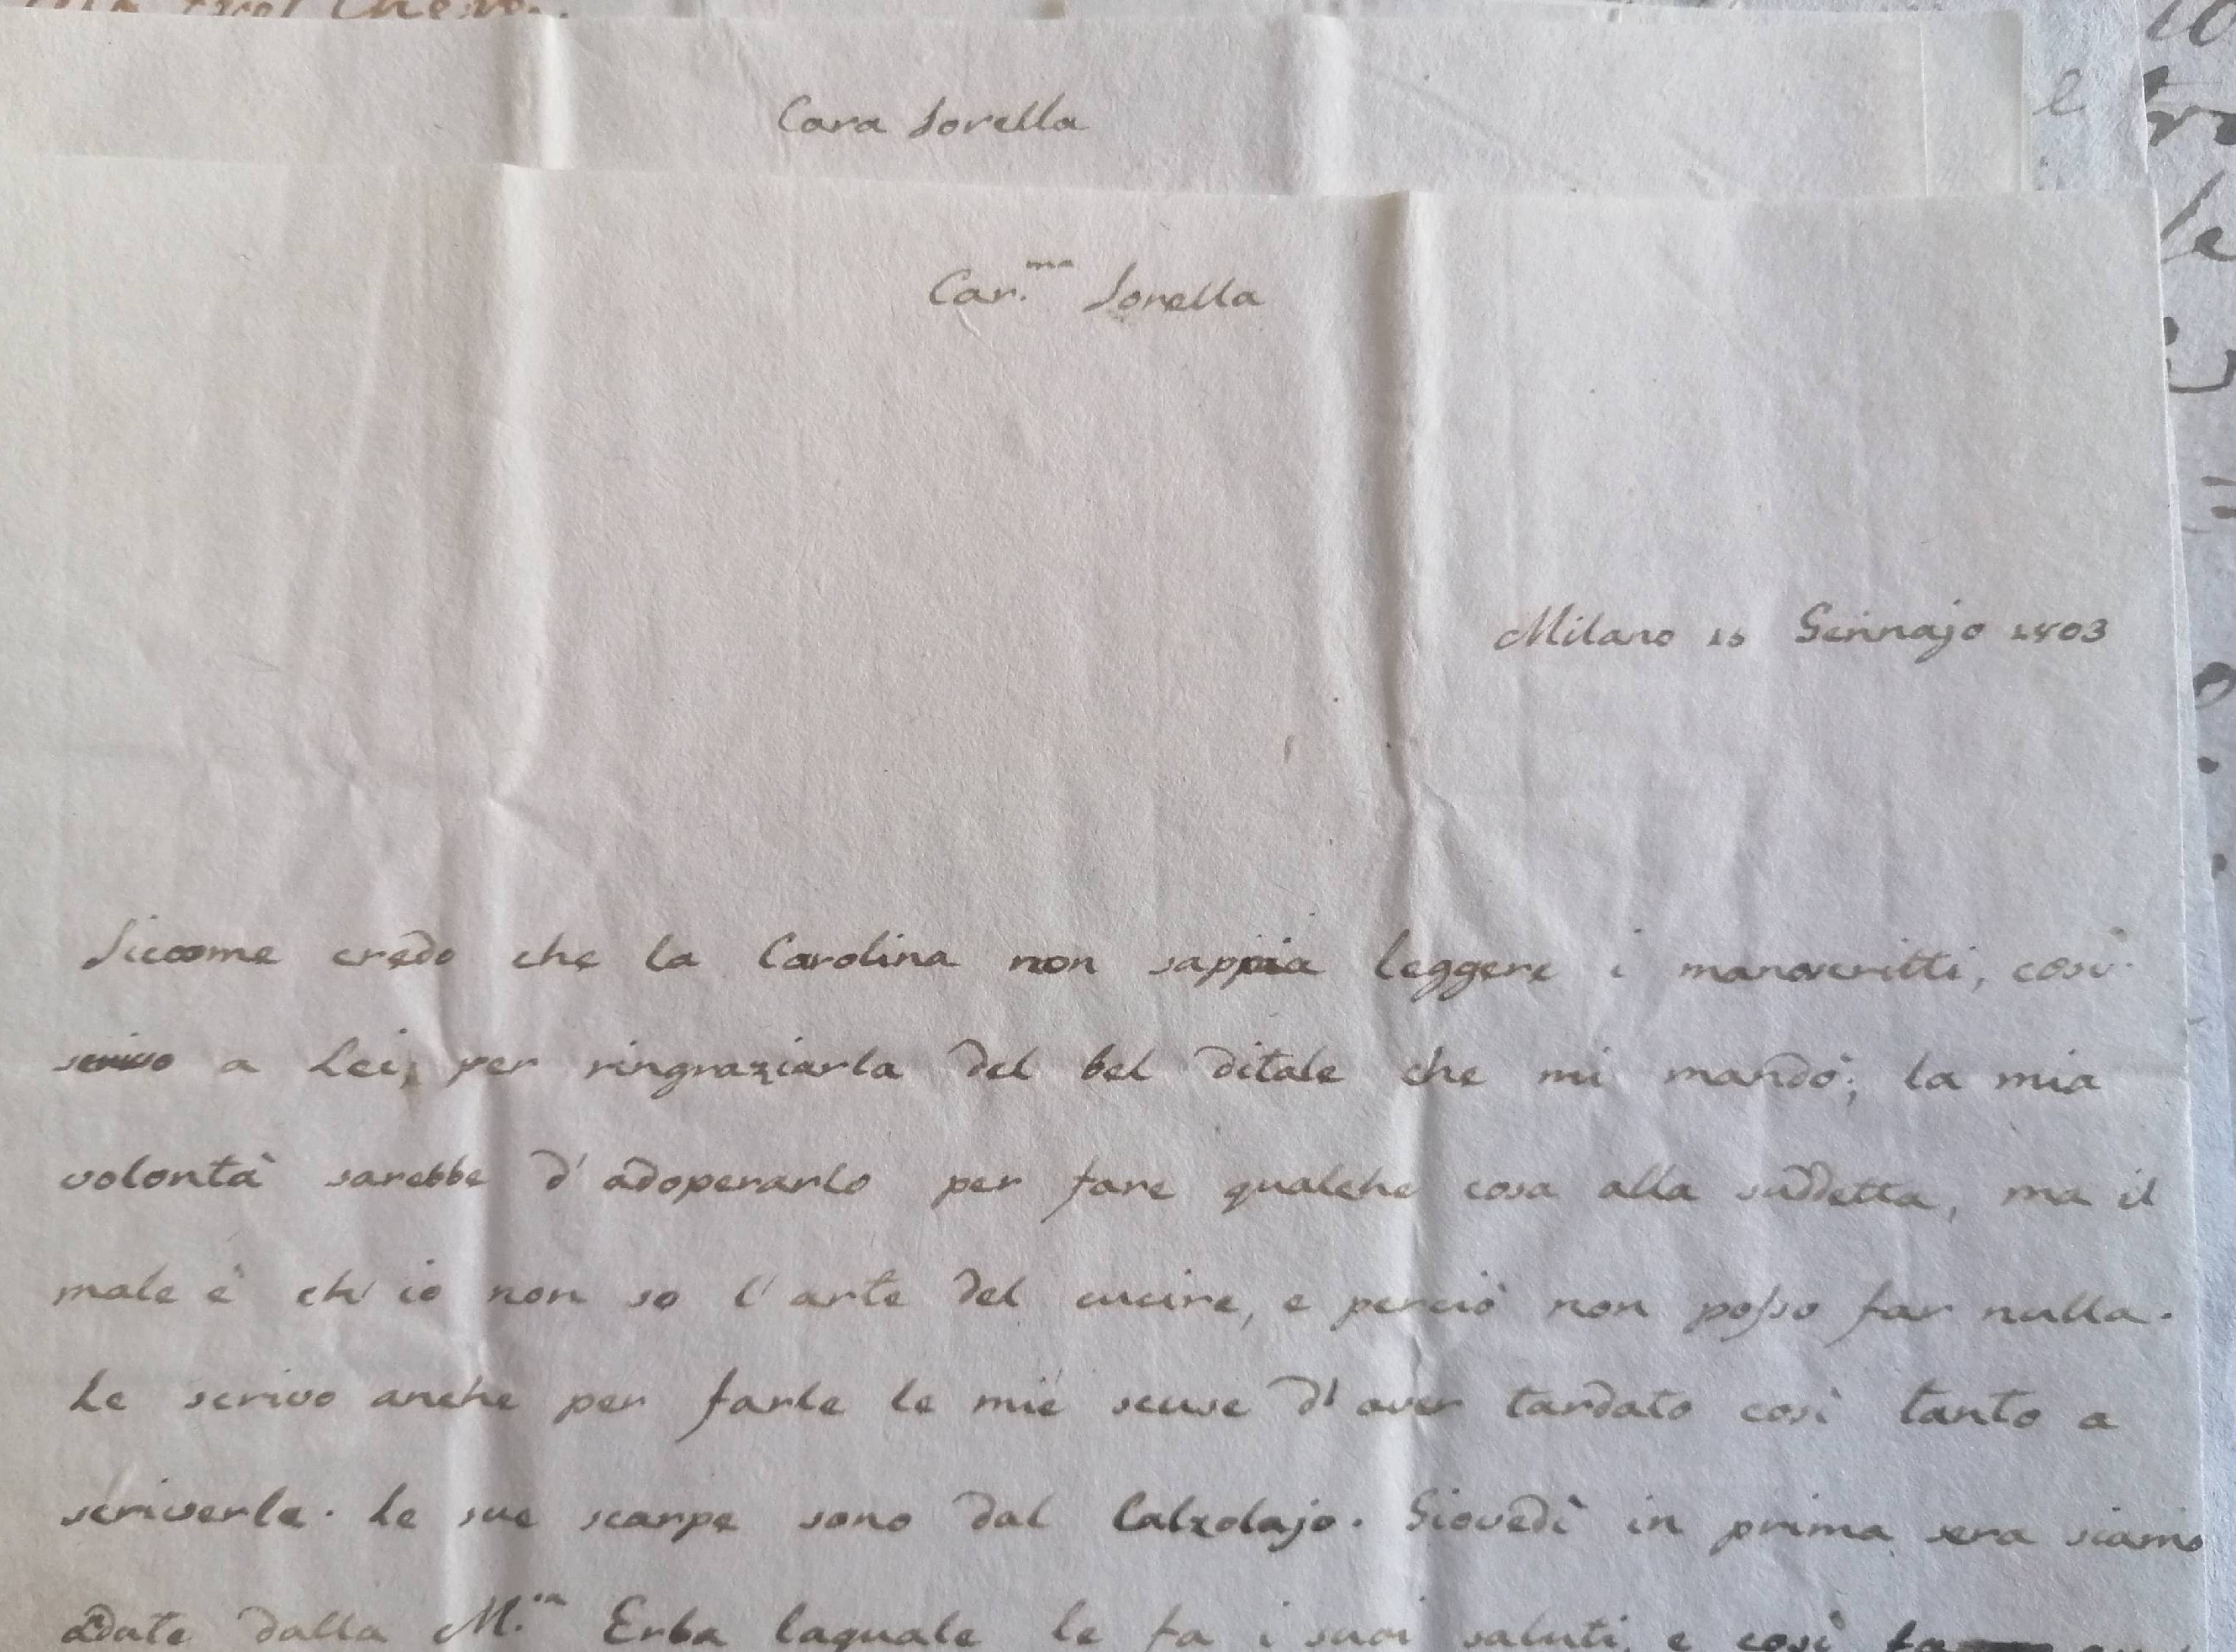 Cara Sorella
Car.ma Sorella
Milano 15 Gennajo 1803
Siccome credo che la Carolina non sappia leggere i manoscritti, così
scrivo a Lei, per ringraziarla del bel ditale che mi mandò; la mia
volontà sarebbe d'adoperarlo per fare qualche cosa alla suddetta, ma il
male è ch'io non so l'arte del cucire, e perciò non posso far nulla.
Le scrivo anche per farle le mie scuse d'aver tardato così tanto a
scriverle. Le sue scarpe sono dal Calzolajo. Giovedì in prima sera siamo
adate dalla M.sa Erba laquale le fa i suoi saluti, e così fa